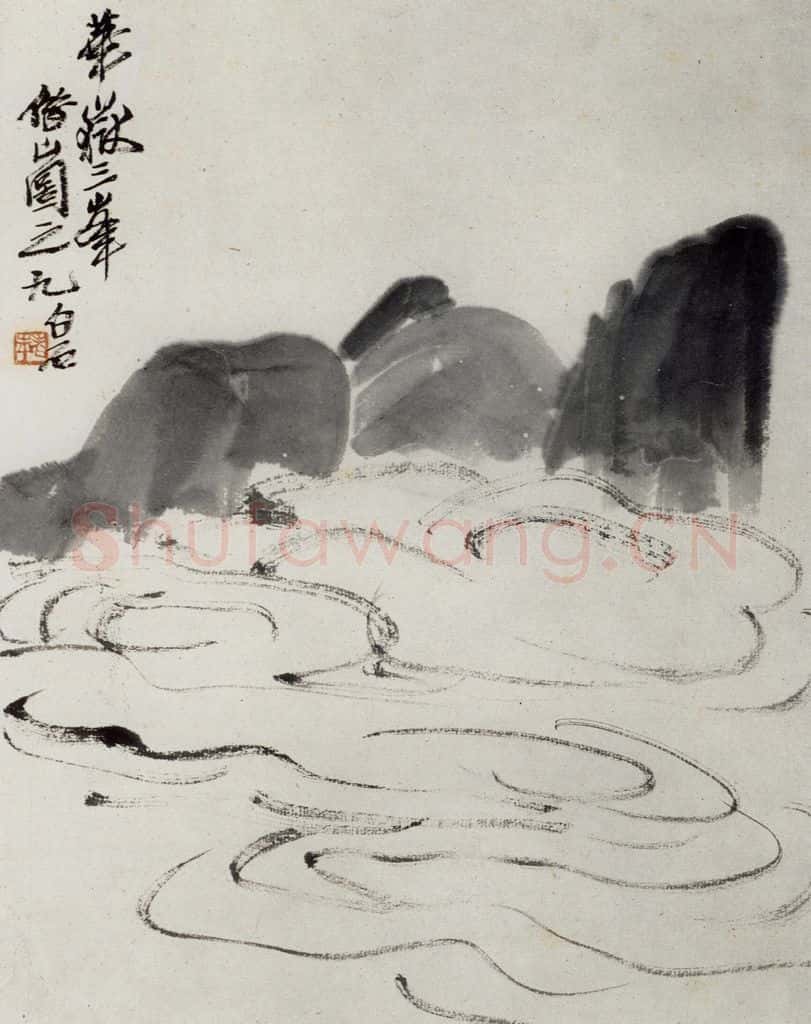 華嶽三峯
借山圖之九白石
Shufawang.CN